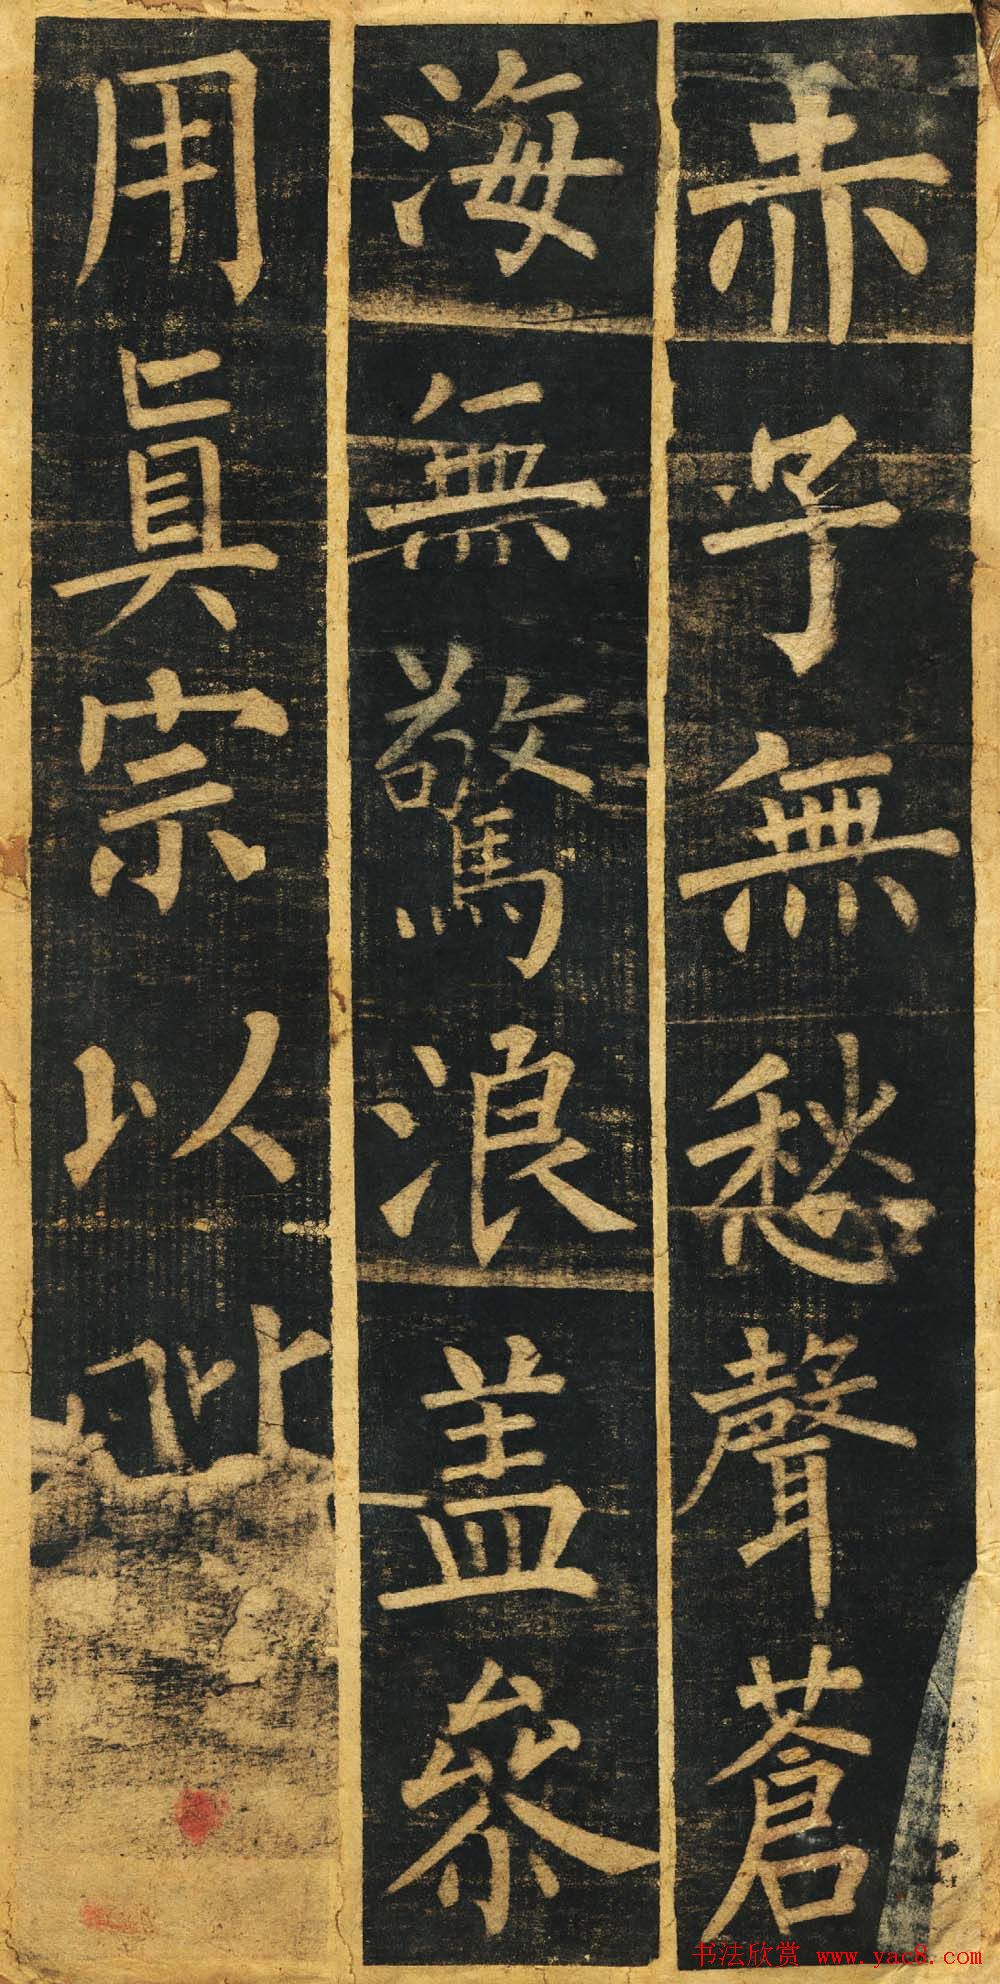 赤子無愁聲蒼
海無驚浪盖叅
用真宗以
书法欣赏 www.yac8.com